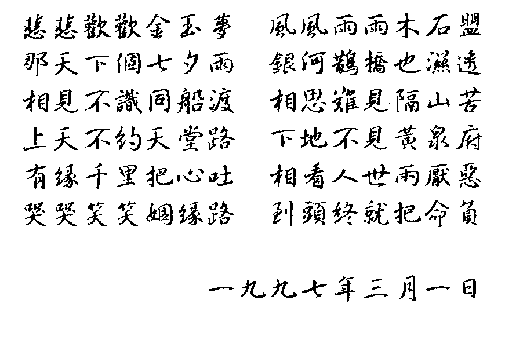 悲悲歡歡金玉夢 風風雨雨木石盟
那天下個七夕雨 銀河鵲橋也濕透
相見不識同船渡 相思難見隔山苦
上天不約天堂路 下地不見黃泉府
有緣千里把心吐 相看人世兩厭惡
哭哭笑笑姻緣路 到頭終就把命負
一九九七年三月一日